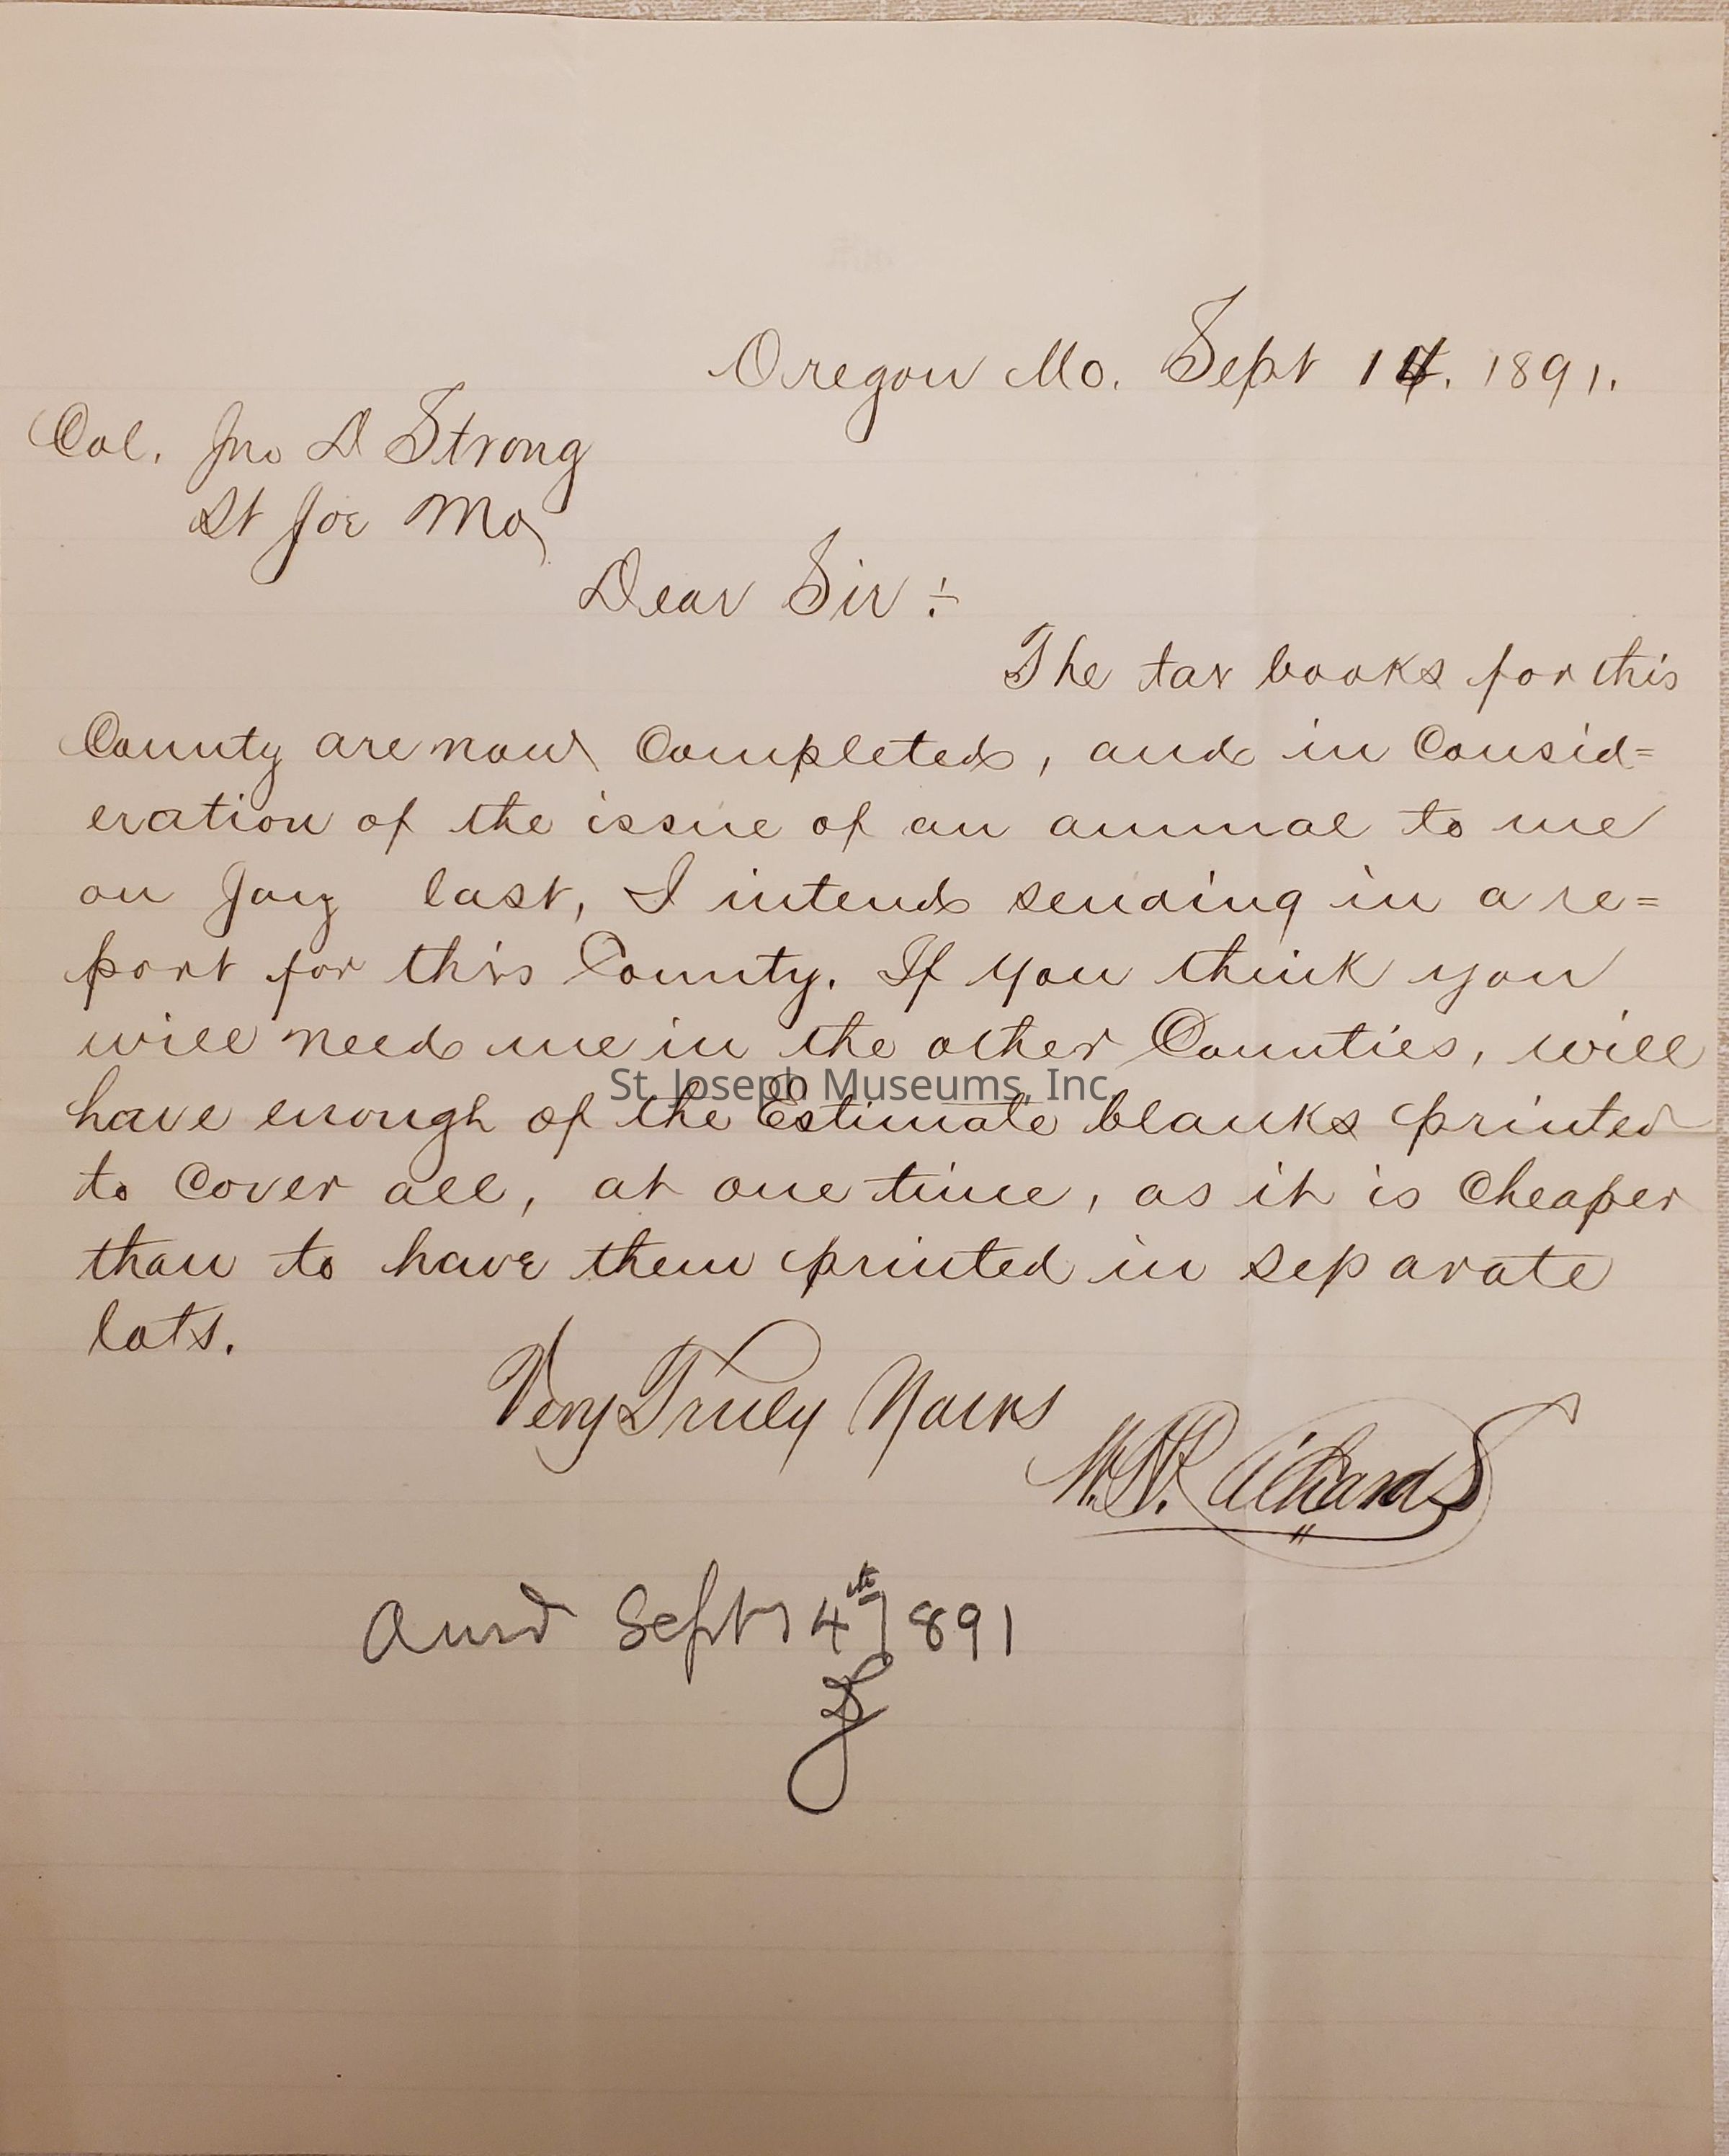 Oregon Mo. Sept 14. 1891.
Col. Jno D Strong
St Joe Mo,
Dear Sir :-
The tax books for this
County are now Completed, and in Consid=
eration of the issue of an annual to me
on Jany last, I intend sending in a re=
port for this County. If you think you
will need me in the other Counties, will
St. Joseph Museums, Inc
have enough of the Estimate blanks printed
to Cover all, at one time, as it is Cheaper
than to have them printed in separate
lots.
Very Truly Yours
Richards
Sept 14th 1891